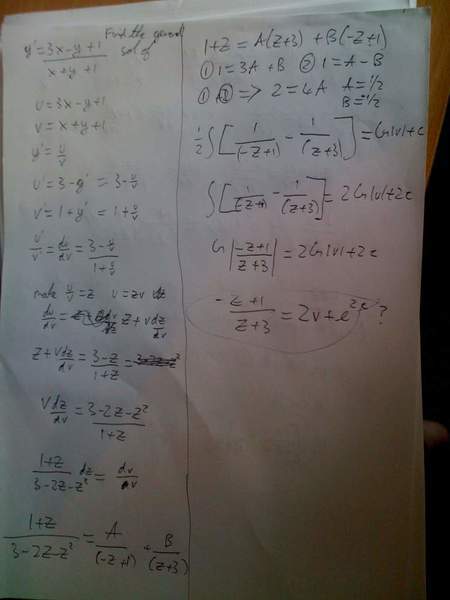 Find the general
sol of
y' = 3x-y+1 / x+y+1
u = 3x-y+1
v = x+y+1
y' = u/v
u' = 3-y' = 3-u/v
v' = 1+y' = 1+u/v
u'/v' = du/dv = 3-u/v / 1+u/v
make u/v = z u = zv
du/dv = z+vdz/dv
z+vdz/dv = 3-z / 1+z =
vdz/dv = 3-2z-z² / 1+z
1+z / 3-2z-z² dz = dv/v
1+z / 3-2z-z² = A/(-z+1) + B/(z+3)
1+z = A(z+3) + B(-z+1)
① 1=3A+B ② 1=A-B
①+② => 2=4A A=1/2
B=-1/2
1/2 ∫[1/(-z+1) - 1/(z+3)] = ln|v|+c
∫[1/(-z+1) - 1/(z+3)] = 2ln|v|+2c
ln|-z+1 / z+3| = 2ln|v|+2c
-z+1 / z+3 = 2v+e^2c ?